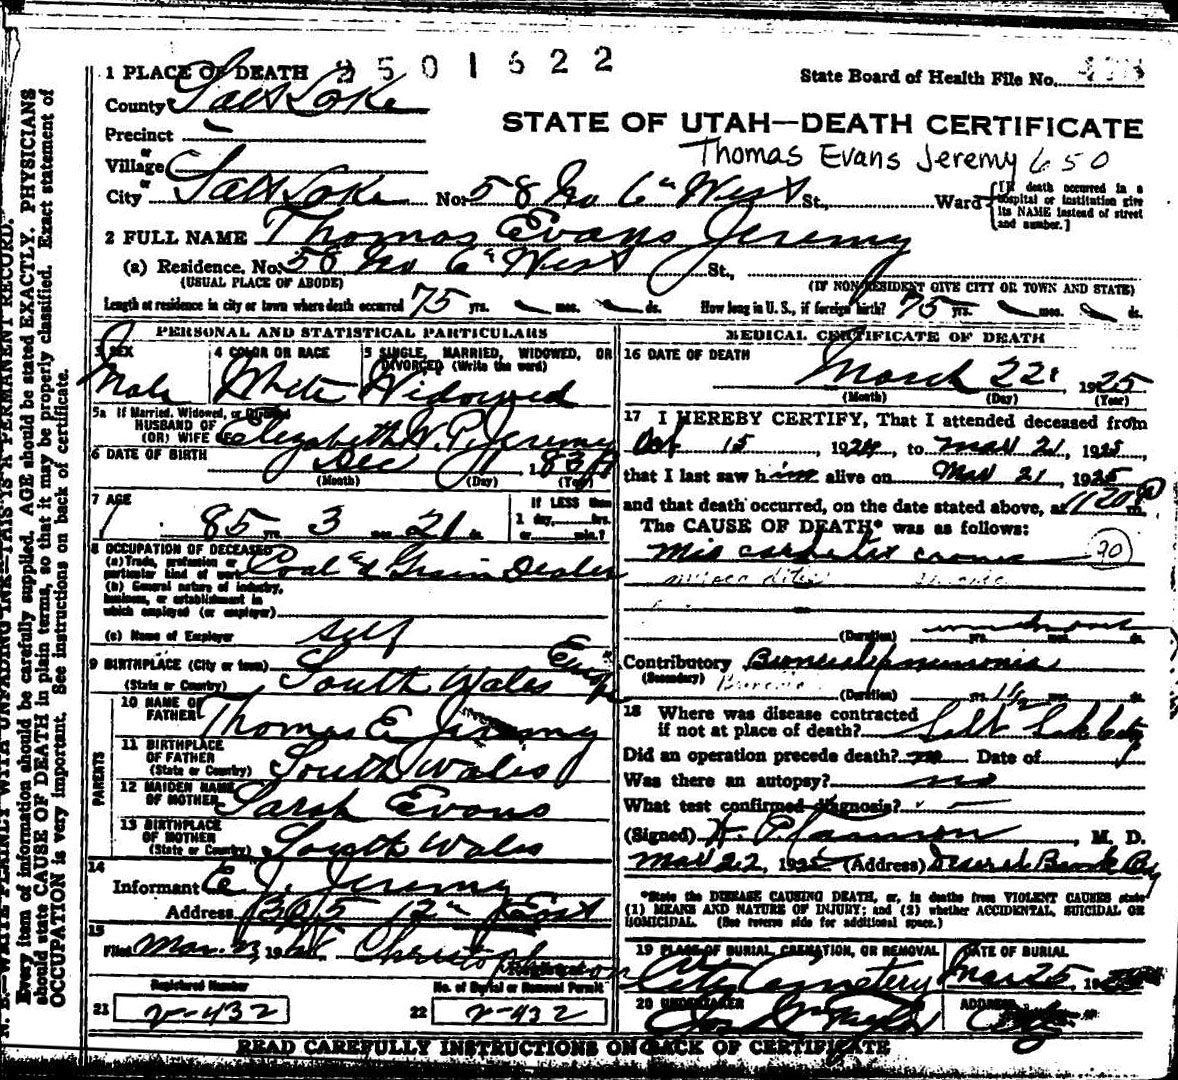 1 PLACE OF DEATH 2501622
State Board of Health File No.
County Salt Lake
STATE OF UTAH—DEATH CERTIFICATE
Precinct
Thomas Evans Jeremy 650
or
Village
or
City Salt Lake No. 58 No 6" West St., Ward
[If death occurred in a
hospital or institution give
its NAME instead of street
and number.]
2 FULL NAME Thomas Evans Jeremy
(a) Residence, No. 58 No 6" West St.,
(USUAL PLACE OF ABODE) (IF NON RESIDENT GIVE CITY OR TOWN AND STATE)
Length of residence in city or town where death occurred 75 yrs. mos. ds. How long in U. S., if foreign birth? 75 yrs. mos. ds.
PERSONAL AND STATISTICAL PARTICULARS
3 SEX
Male
4 COLOR OR RACE
White
5 SINGLE, MARRIED, WIDOWED, OR
DIVORCED (Write the word)
Widowed
5a If Married, Widowed, or Divorced
HUSBAND OF
(OR) WIFE of Elizabeth W. P. Jeremy
6 DATE OF BIRTH Dec
(Month) (Day) (Year)
7 AGE
85 yrs. 3 mos. 21 ds.
If LESS than
1 day, hrs.
or min.?
8 OCCUPATION OF DECEASED
(a) Trade, profession or
particular kind of work Coal & Grain Dealer
(b) General nature of industry,
business, or establishment in
which employed (or employer)
(c) Name of Employer self
9 BIRTHPLACE (City or town)
(State or Country) South Wales Europe
PARENTS
10 NAME OF
FATHER Thomas E Jeremy
11 BIRTHPLACE
OF FATHER
(State or Country) South Wales
12 MAIDEN NAME
OF MOTHER Sarah Evans
13 BIRTHPLACE
OF MOTHER
(State or Country) South Wales
14
Informant E. J. Jeremy
Address 12" East
15
Filed Mar. 23, 19
Registrar
Registered Number
21 2-432
No. of Burial or Removal Permit
22 2-432
MEDICAL CERTIFICATE OF DEATH
16 DATE OF DEATH
March 22, 1925
(Month) (Day) (Year)
17 I HEREBY CERTIFY, That I attended deceased from
Oct 15, 1924, to Mar 21, 1925
that I last saw him alive on Mar 21, 1925
and that death occurred, on the date stated above, at 1120 P m.
The CAUSE OF DEATH* was as follows:
90
(Duration) yrs. mos. ds.
Contributory Broncho pneumonia
(Secondary)
(Duration) yrs. 1½ mos. ds.
18 Where was disease contracted
if not at place of death? Salt Lake City
Did an operation precede death? no Date of
Was there an autopsy? no
What test confirmed diagnosis?
(Signed) , M. D.
Mar 22, 1925 (Address) Deseret Bank Bldg
*State the DISEASE CAUSING DEATH, or, in deaths from VIOLENT CAUSES state
(1) MEANS AND NATURE OF INJURY; and (2) whether ACCIDENTAL, SUICIDAL OR
HOMICIDAL. (See reverse side for additional space.)
19 PLACE OF BURIAL, CREMATION, OR REMOVAL
City Cemetery
DATE OF BURIAL
Mar 25, 19
20 UNDERTAKER
ADDRESS
READ CAREFULLY INSTRUCTIONS ON BACK OF CERTIFICATE
N. B.—WRITE PLAINLY WITH UNFADING INK—THIS IS A PERMANENT RECORD.
Every item of information should be carefully supplied. AGE should be stated EXACTLY. PHYSICIANS
should state CAUSE OF DEATH in plain terms, so that it may be properly classified. Exact statement of
OCCUPATION is very important. See instructions on back of certificate.